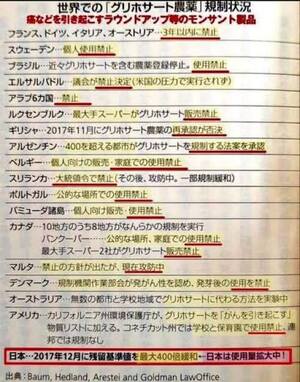 世界での「グリホサート農薬」規制状況
癌などを引き起こすラウンドアップ等のモンサント製品
フランス、ドイツ、イタリア、オーストリア…3年以内に禁止
スウェーデン…個人使用禁止
ブラジル…近々グリホサートを含む農薬登録停止。使用禁止
エルサルバドル…議会が禁止決定(米国の圧力で実行されず)
アラブ6カ国…禁止
ルクセンブルク…最大手スーパーがグリホサート販売禁止
ギリシャ…2017年11月にグリホサート農薬の再承認が否決
アルゼンチン…400を超える都市がグリホサートを規制する法案を承認
ベルギー…個人向けの販売・家庭での使用禁止
スリランカ…大統領令で禁止(その後、攻防中。一部規制緩和)
ポルトガル…公的な場所での使用禁止
バミューダ諸島…個人向け販売・使用禁止
カナダ…10地方のうち8地方がなんらかの規制を実行
バンクーバー……公的な場所、家庭での使用禁止
最大手スーパー2社がグリホサート販売禁止
マルタ…禁止の方針が出たが、現在攻防中
デンマーク…規制機関作業部会が発がん性を認め、発芽後の使用を禁止
オーストラリア…無数の都市と学校地域でグリホサートに代わる方法を実験中
アメリカ…カリフォルニア州環境保護庁が、グリホサートを「がんを引き起こす」
物質リストに加える。コネチカット州では学校と保育園で使用禁止。連
邦では規制なし
日本…2017年12月に残留基準値を最大400倍緩和←日本は使用量拡大中!
出典:Baum, Hedland, Arestei and Goldman LawOffice